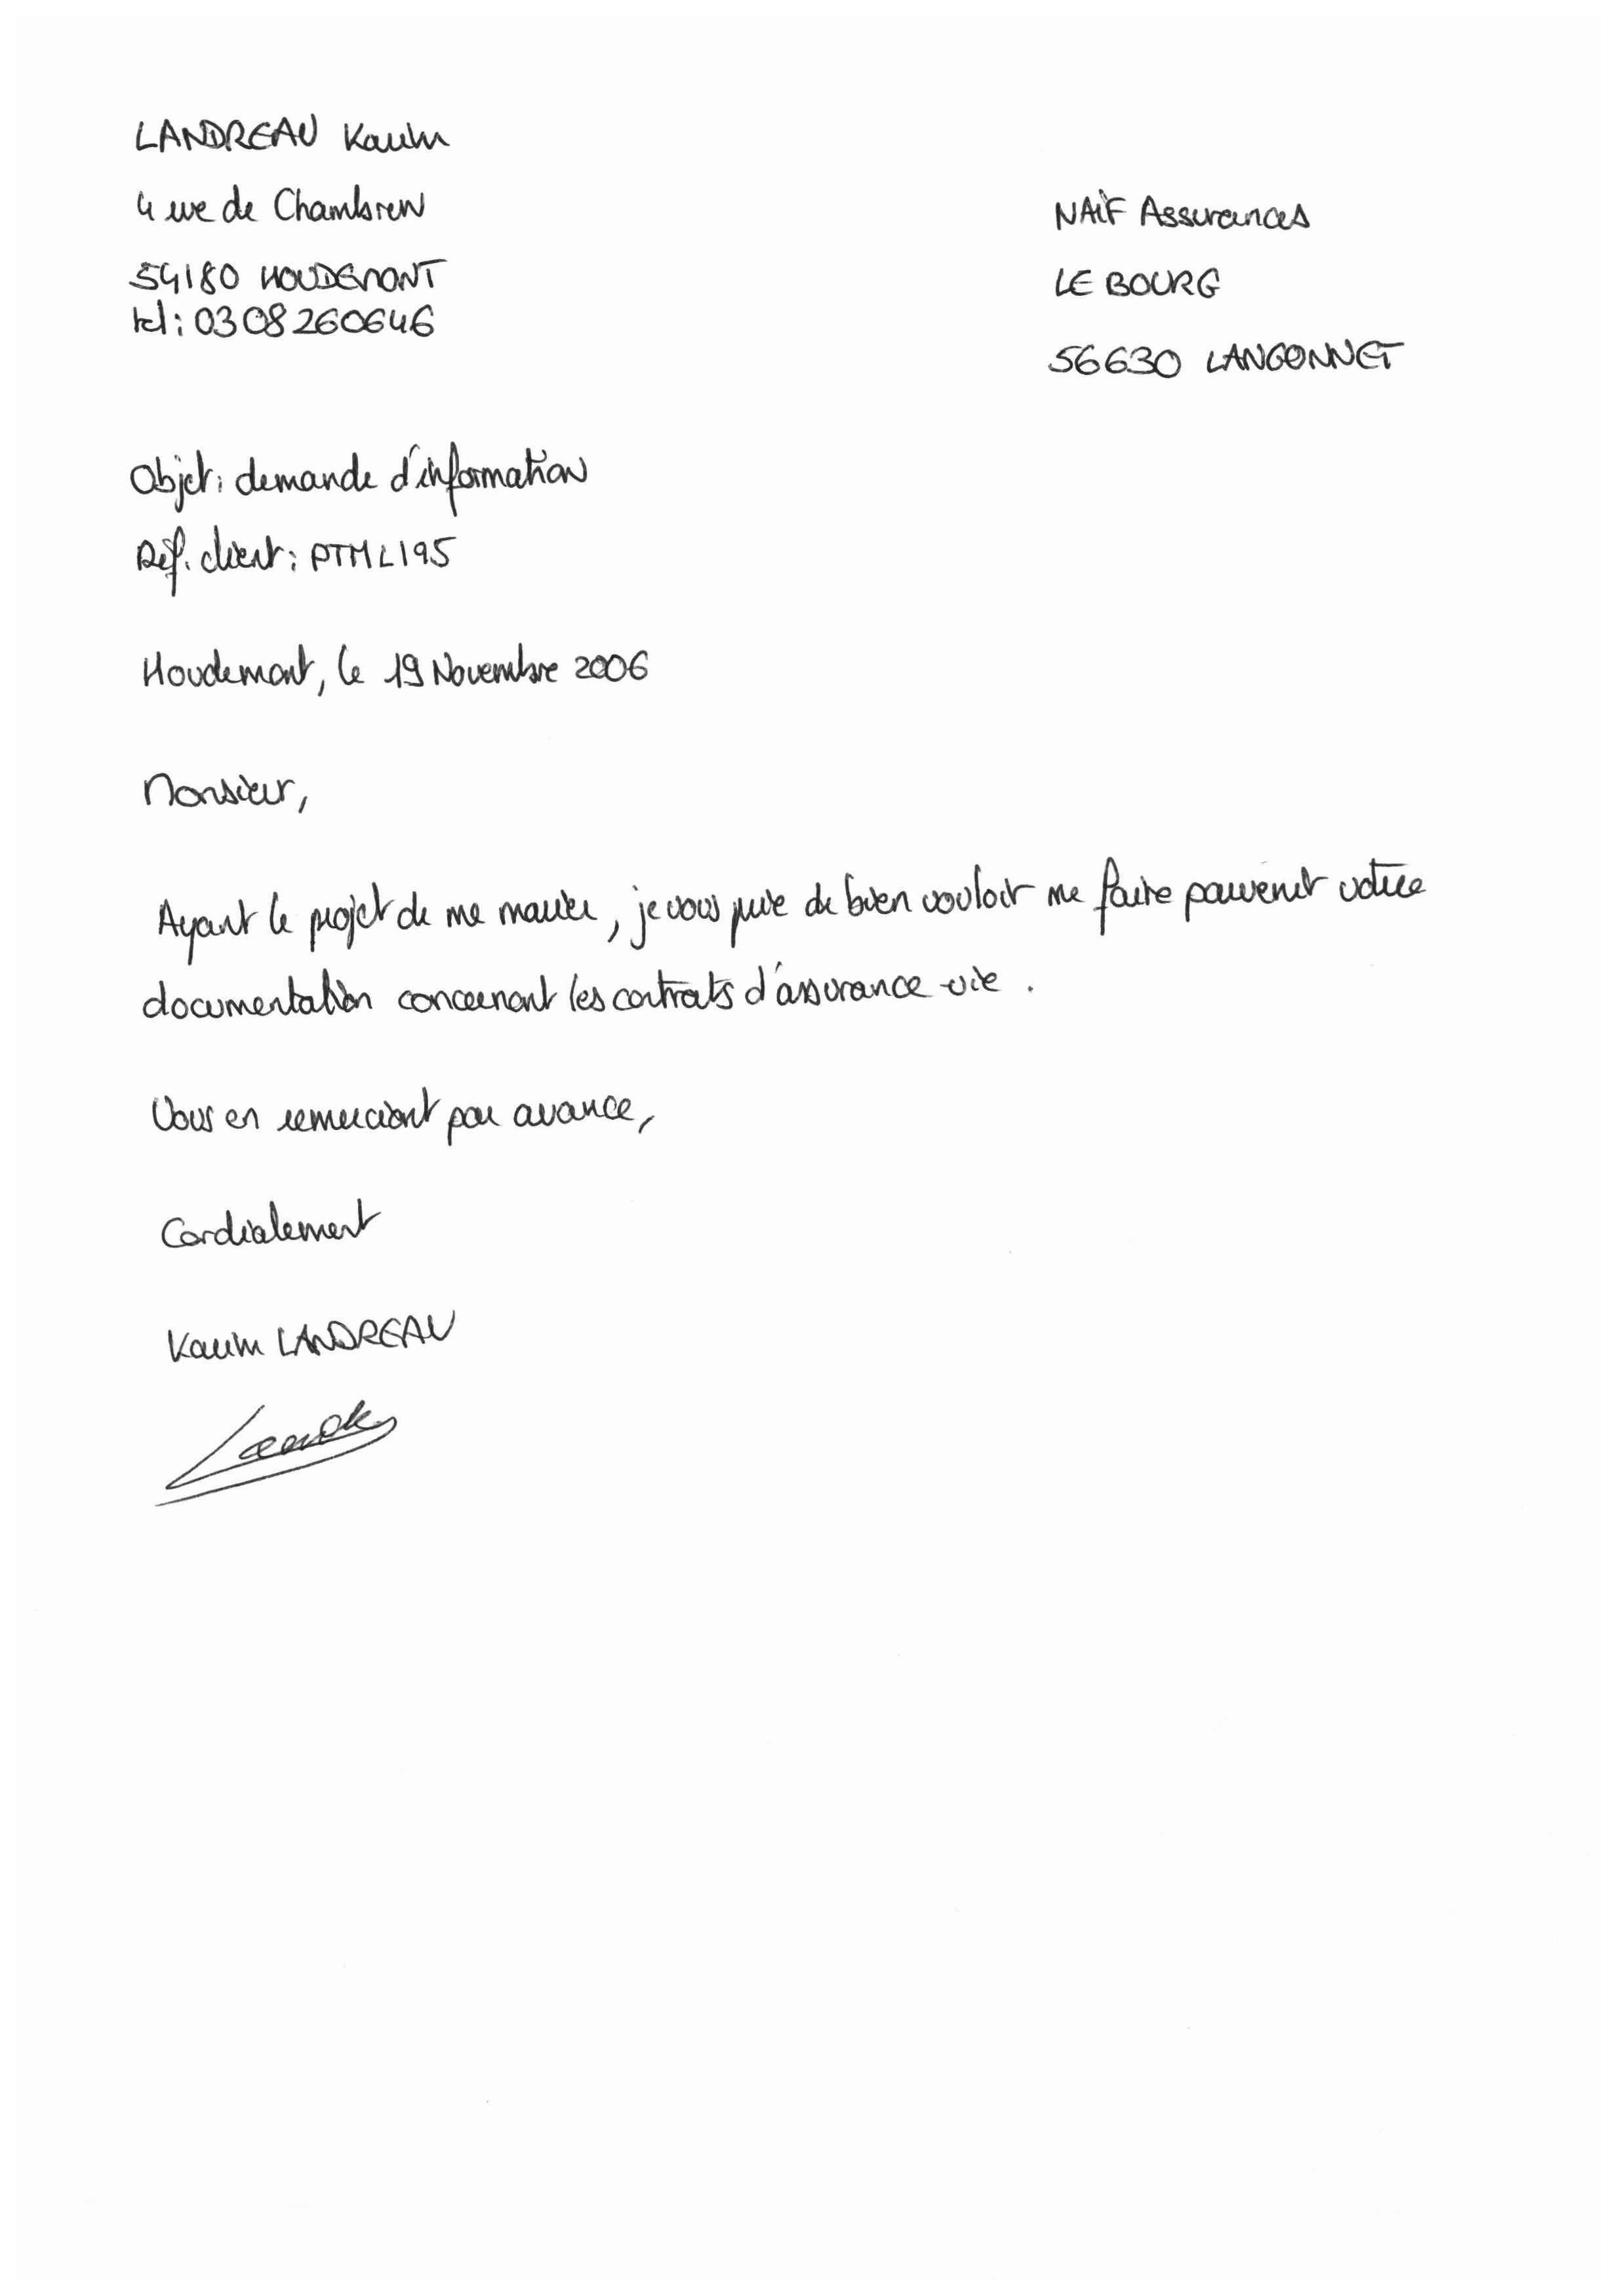 LANDREAU Karim
4 rue de Chambrew
54180 HOUDEMONT
tel: 0308260646
NAIF Assurances
LE BOURG
56630 LANGONNET
Objet: demande d'information
Réf. client: PTMLI95
Houdemont, le 19 Novembre 2006
Monsieur,
Ayant le projet de me marier, je vous prie de bien vouloir me faire parvenir votre
documentation concernant les contrats d'assurance-vie.
Vous en remerciant par avance,
Cordialement
Karim LANDREAU